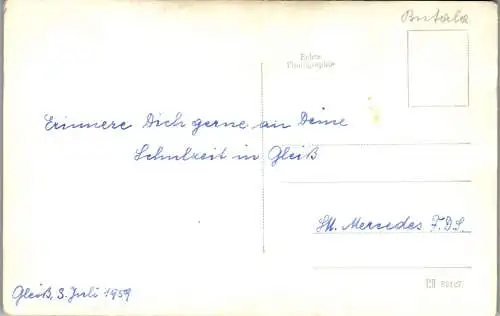 Butala
Echte
Photographie
Erinnere Dich gerne an Deine
Schulzeit in Gleiß
SM. Mercedes F.D.S.
Gleiß, 3. Juli 1959